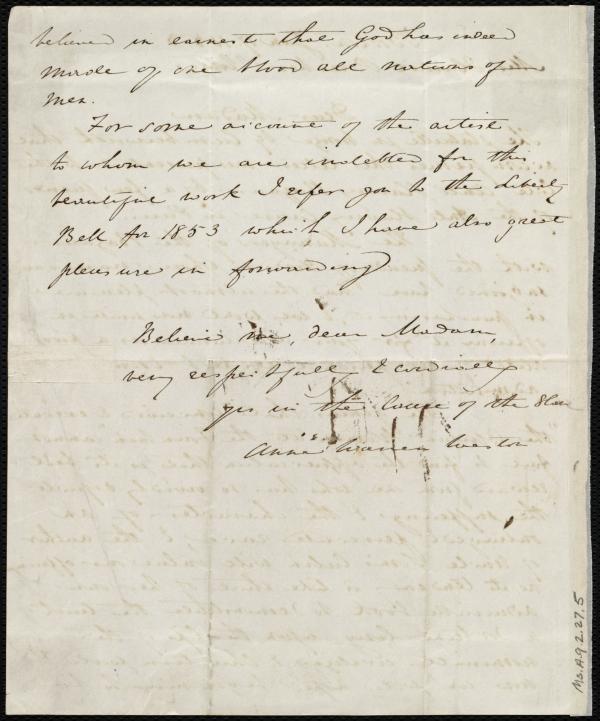 believe in earnest that God has indeed
made of one blood all nations of
men.
For some account of the artist
to whom we are indebted for this
beautiful work I refer you to the Liberty
Bell for 1853 which I have also great
pleasure in forwarding
Believe me, dear Madam,
very respectfully & cordially
yrs in the Cause of the Slave
Anne Warren Weston
Ms.A.9.2.27.5